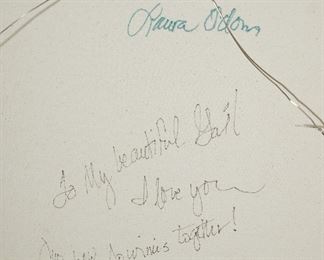 Laura Odom
To My beautiful Gail
I love you
together!